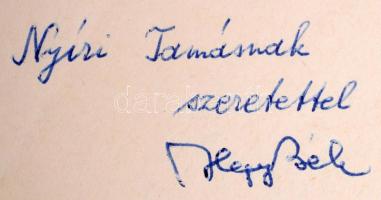 Nyíri Tamásnak
szeretettel
Hegyi Béla